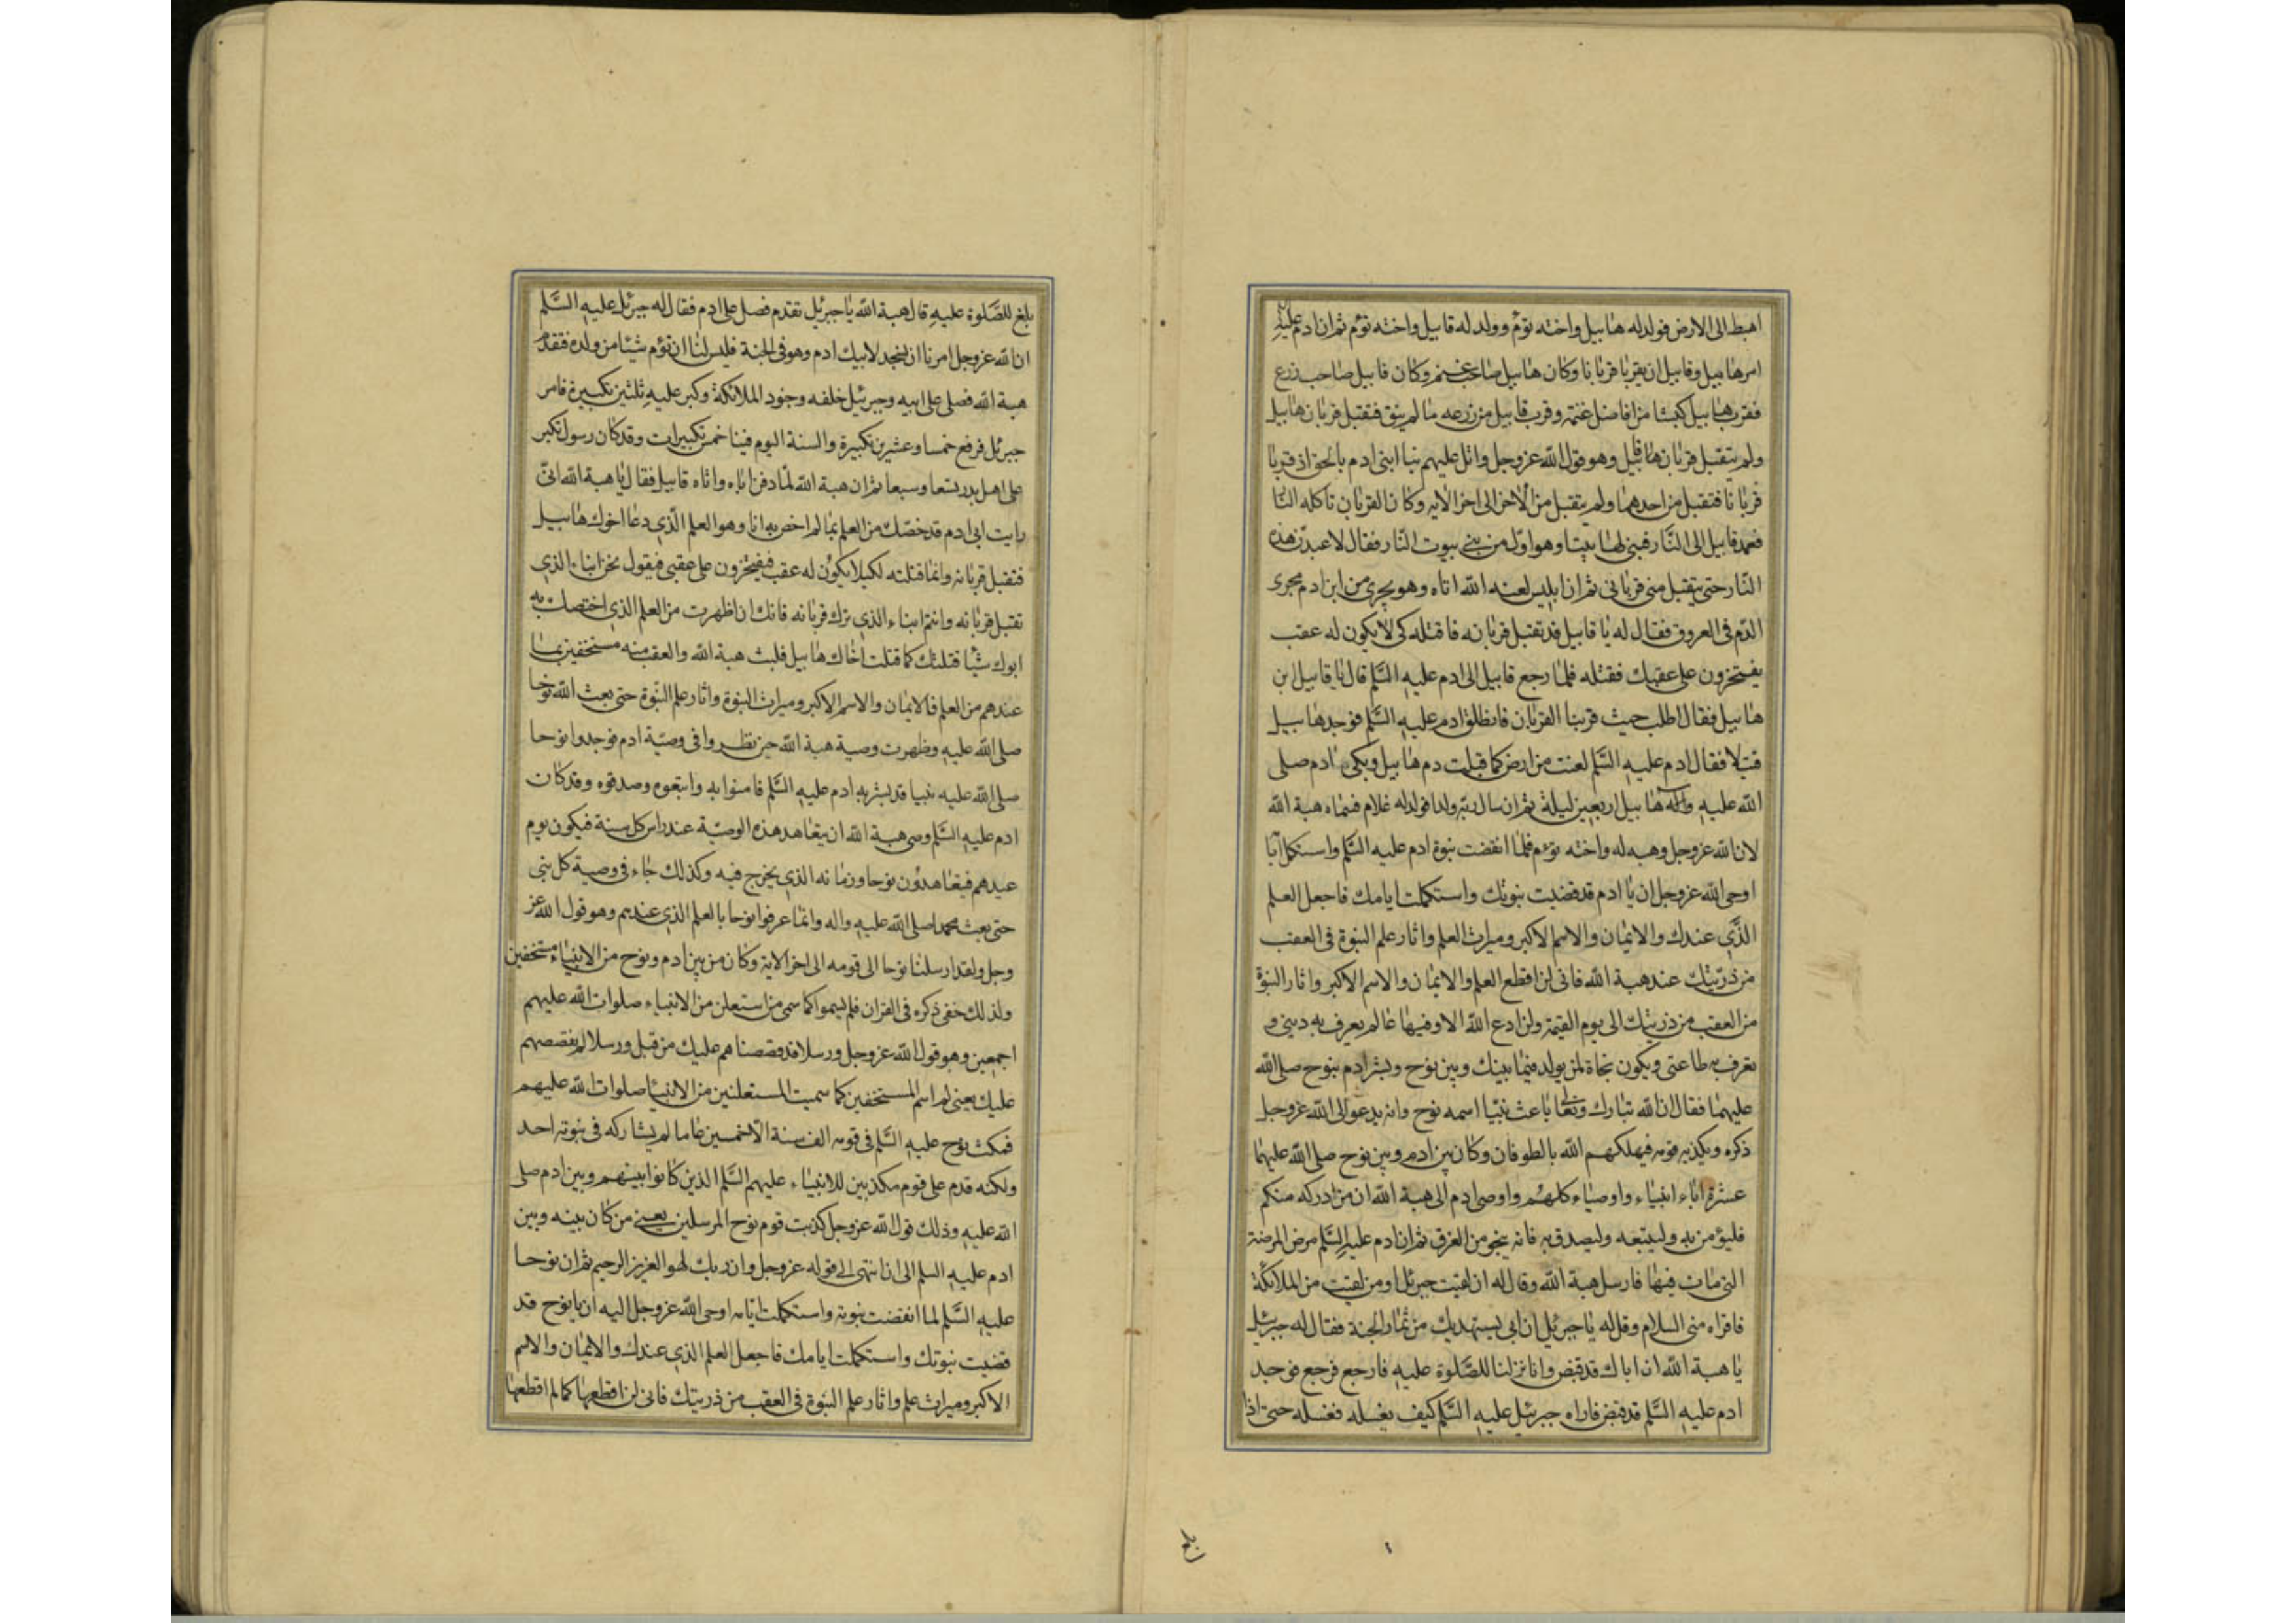 اهبط الى الارض فولد له هابيل واخته توم وولد له قابيل واخته توم ثم ان ادم عليه
امر هابيل وقابيل ان يقربا قربانا وكان هابيل صاحب غنم وكان قابيل صاحب زرع
فقرب هابيل كبشا من افاضل غنمه وقرب قابيل من زرعه ما لم ينق فتقبل قربان هابيل
ولم يتقبل قربان قابيل وهو قول الله عز وجل واتل عليهم نبا ابنى ادم بالحق اذ قربا
قربانا فتقبل من احدهما ولم يتقبل من الاخر الى اخر الايه وكان القربان تاكله النا
فعمد قابيل الى النار فبنى لها بيتا وهو اول من بنى بيوت النار فقال لاعبدن هذه
النار حتى يتقبل منى قربانى ثم ان ابليس لعنه الله اتاه وهو يجرى من ابن ادم مجرى
الدم فى العروق فقال له يا قابيل قد تقبل قربانه فاقتله كى لا يكون له عقب
يفتخرون على عقبك فقتله فلما رجع قابيل الى ادم عليه السلم قال يا قابيل اين
هابيل فقال اطلب حيث قربنا القربان فانطلق ادم عليه السلم فوجد هابيل
قتيلا فقال ادم عليه السلم لعنت من ارض كما قبلت دم هابيل وبكى ادم صلى
الله عليه واله هابيل اربعين ليلة ثم ان سال ربه ولدا فولد له غلام فسماه هبة الله
لان الله عز وجل وهبه له واخته توم فلما انقضت نبوة ادم عليه السلم واستكمل ايا
اوحى الله عز وجل ان يا ادم قد قضيت نبوتك واستكملت ايامك فاجعل العلم
الذى عندك والايمان والاسم الاكبر وميراث العلم واثار علم النبوة فى العقب
من ذريتك عند هبة الله فانى لن اقطع العلم والايمان والاسم الاكبر واثار النبوة
من العقب من ذريتك الى يوم القيمة ولن ادع الله الا وفيها عالم يعرف به دينى و
تعرف به طاعتى ويكون نجاة لمن يولد فيما بينك وبين نوح وبشر ادم بنوح صلى الله
عليهما فقال ان الله تبارك وتعالى باعث نبيا اسمه نوح وانه يدعو الى الله عز وجل
ذكره ويكذبه قومه فيهلكهم الله بالطوفان وكان بين ادم وبين نوح صلى الله عليهما
عشرة اباء انبياء واوصياء كلهم واوصى ادم الى هبة الله ان من ادركه منكم
فليؤمن به وليتبعه وليصدق به فانه ينجو من الغرق ثم ان ادم عليه السلم مرض المرضة
التى مات فيها فارسل هبة الله وقال له ان لقيت جبرئل او من لقيت من الملائكة
فاقراه منى السلام وقل له يا جبرئيل ان ابى يستهديك من ثمار الجنة فقال له جبرئيل
يا هبة الله ان اباك قد قبض وانا نزلنا للصلوة عليه فارجع فرجع فوجد
ادم عليه السلم قد قبض فاراه جبرئيل عليه السلم كيف يغسله فغسله حتى اذا
بلغ
بلغ للصلوة عليه قال هبة الله يا جبرئيل تقدم فصل على ادم فقال له جبرئل عليه السلم
ان الله عز وجل امرنا ان نسجد لابيك ادم وهو فى الجنة فليس لنا ان نؤم شيئا من ولده فتقدم
هبة الله فصلى على ابيه وجبرئيل خلفه وجنود الملائكة وكبر عليه ثلثين تكبيرة فامر
جبرئل فرفع خمسا وعشرين تكبيرة والسنة اليوم فينا خمس تكبيرات وقد كان رسول تكبر
على اهل بدر تسعا وسبعا ثم ان هبة الله لما دفن اباه واتاه قابيل فقال يا هبة الله انى
رايت ابى ادم قد خصك من العلم بما لم اخص به انا وهو العلم الذى دعا اخوك هابيل
فتقبل قربانه وانما قتلته لكيلا يكون له عقب فيفتخرون على عقبى فيقول نحن ابناء الذى
تقبل قربانه وانتم ابناء الذى ترك قربانه فانك ان اظهرت من العلم الذى اختصك به
ابوك شيئا قتلتك كما قتلت اخاك هابيل فلبث هبة الله والعقب منه مستخفين بما
عندهم من العلم فالايمان والاسم الاكبر وميراث النبوة واثار علم النبوة حتى بعث الله نوحا
صلى الله عليه وظهرت وصية هبة الله حين نظروا فى وصية ادم فوجدوا نوحا
صلى الله عليه نبيا قد بشر به ادم عليه السلم فامنوا به واتبعوه وصدقوه وقد كان
ادم عليه السلم وصى هبة الله ان يتعاهد هذه الوصية عند راس كل سنة فيكون يوم
عيدهم فيتعاهدون نوحا وزمانه الذى يخرج فيه وكذلك جاء فى وصية كل نبى
حتى بعث محمدا صلى الله عليه واله وانما عرفوا نوحا بالعلم الذى عندهم وهو قول الله عز
وجل ولقد ارسلنا نوحا الى قومه الى اخر الاية وكان من بين ادم ونوح من الانبياء مستخفين
ولذلك خفى ذكره فى القران فلم يسموا كما سمى من استعلن من الانبياء صلوات الله عليهم
اجمعين وهو قول الله عز وجل ورسلا قد قصصناهم عليك من قبل ورسلا لم نقصصهم
عليك يعنى لم اسم المستخفين كما سميت المستعلنين من الانبيا صلوات الله عليهم
فمكث نوح عليه السلم فى قومه الف سنة الا خمسين عاما لم يشاركه فى نبوته احد
ولكنه قدم على قوم مكذبين للانبياء عليهم السلم الذين كانوا بينهم وبين ادم صلى
الله عليه وذلك قول الله عز وجل كذبت قوم نوح المرسلين يعنى من كان بينه وبين
ادم عليه السلم الى ان انتهى الى قوله عز وجل وان ربك لهو العزيز الرحيم ثم ان نوحا
عليه السلم لما انقضت نبوته واستكملت ايامه اوحى الله عز وجل اليه ان يا نوح قد
قضيت نبوتك واستكملت ايامك فاجعل العلم الذى عندك والايمان والاسم
الاكبر وميراث علم واثار علم النبوة فى العقب من ذريتك فانى لن اقطعها كما لم اقطعها